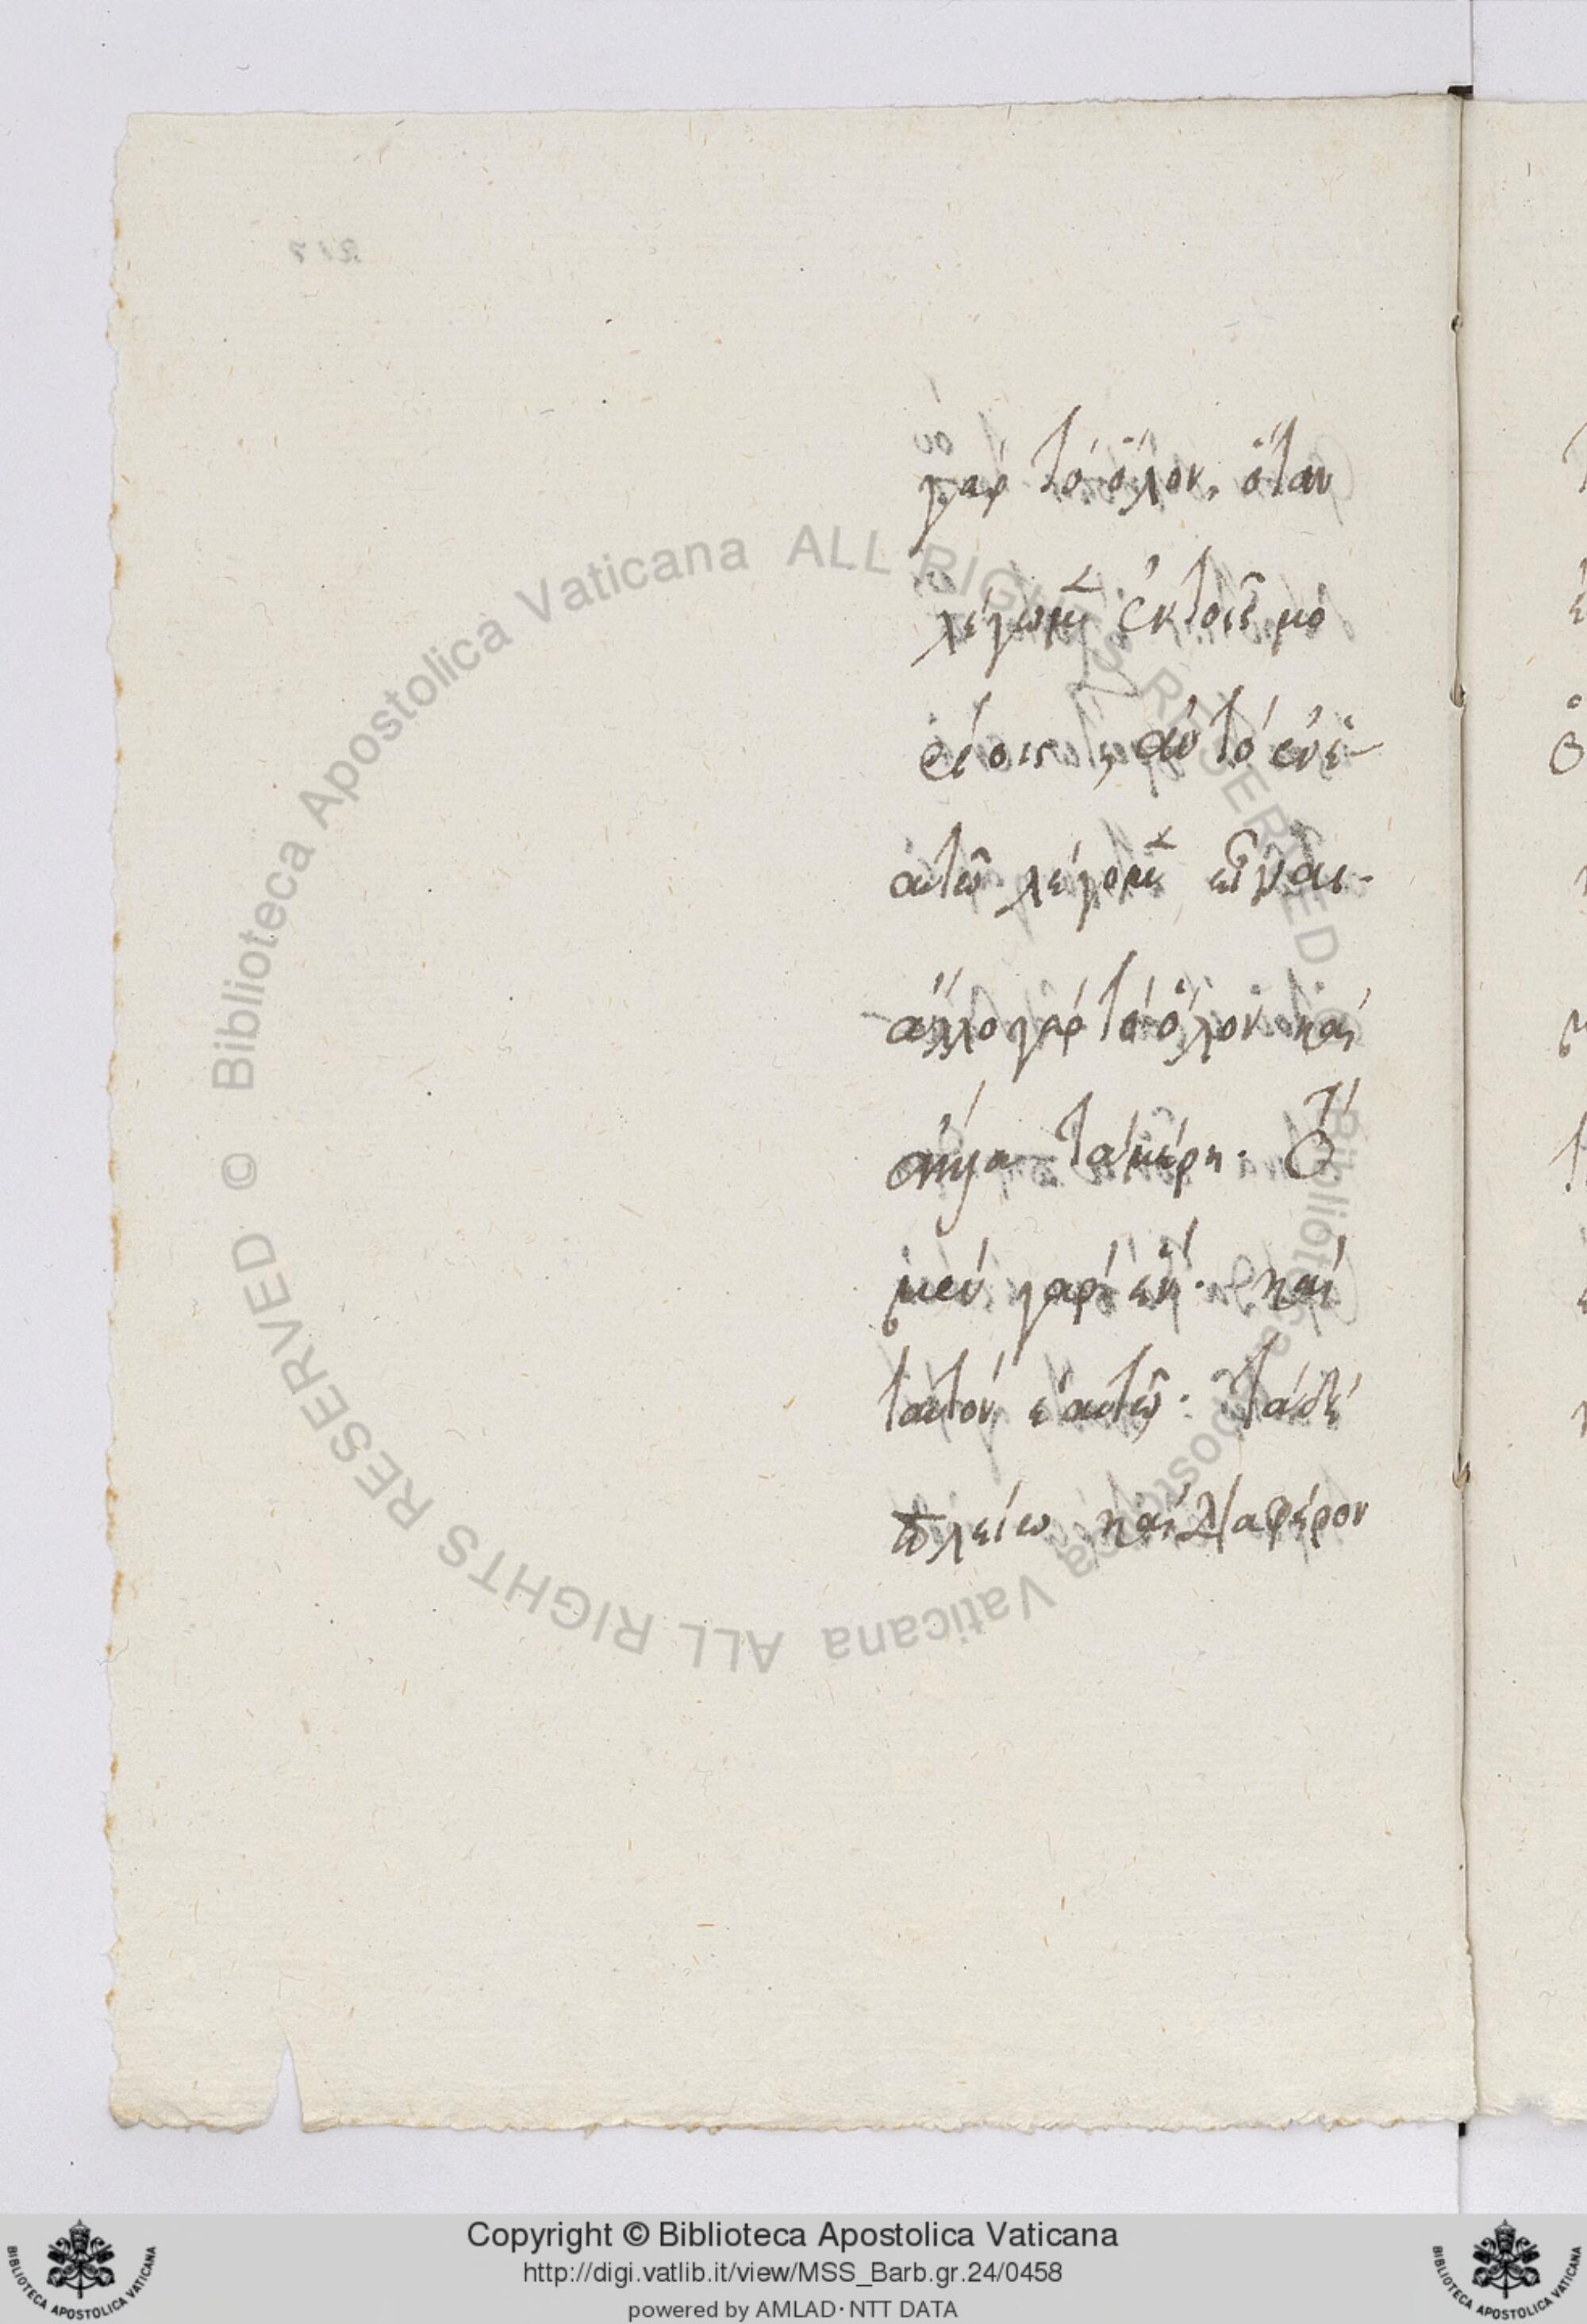 γαρ τὸ ὅλον, ὅταν
λέγωμεν ἐν τοῖς μο
ρίοις, αὐτὸ ἐν ἑ-
αυτῶ λέγομεν εἶναι.
ἄλλο γάρ τὸ ὅλον καὶ
ἄλλα τὰ μέρη. τὸ
μεν γάρ ἕν. καὶ
ταυτόν ἑαυτῶ. τὰ δὲ
πλείω καὶ διαφέρον
Biblioteca Apostolica Vaticana ALL RIGHTS RESERVED ©
Biblioteca Apostolica Vaticana ALL RIGHTS RESERVED ©
Copyright © Biblioteca Apostolica Vaticana
http://digi.vatlib.it/view/MSS_Barb.gr.24/0458
powered by AMLAD·NTT DATA
BIBLIOTECA APOSTOLICA VATICANA
BIBLIOTECA APOSTOLICA VATICANA